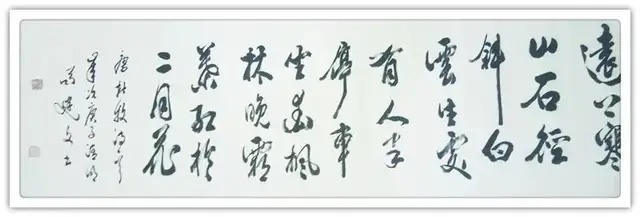 遠上寒
山石徑
斜白
雲生處
有人家
停車
坐愛楓
林晚霜
葉紅於
二月花
唐杜牧詩
歲次庚子清明